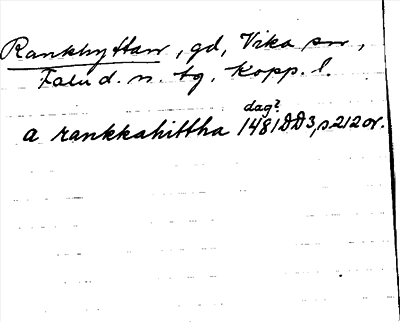 Rankhyttan, gd, Vika sn,
Falu d. n. tg, Kopp. l.
dag?
a rankkahittha 1481 DD3, s 212 or.